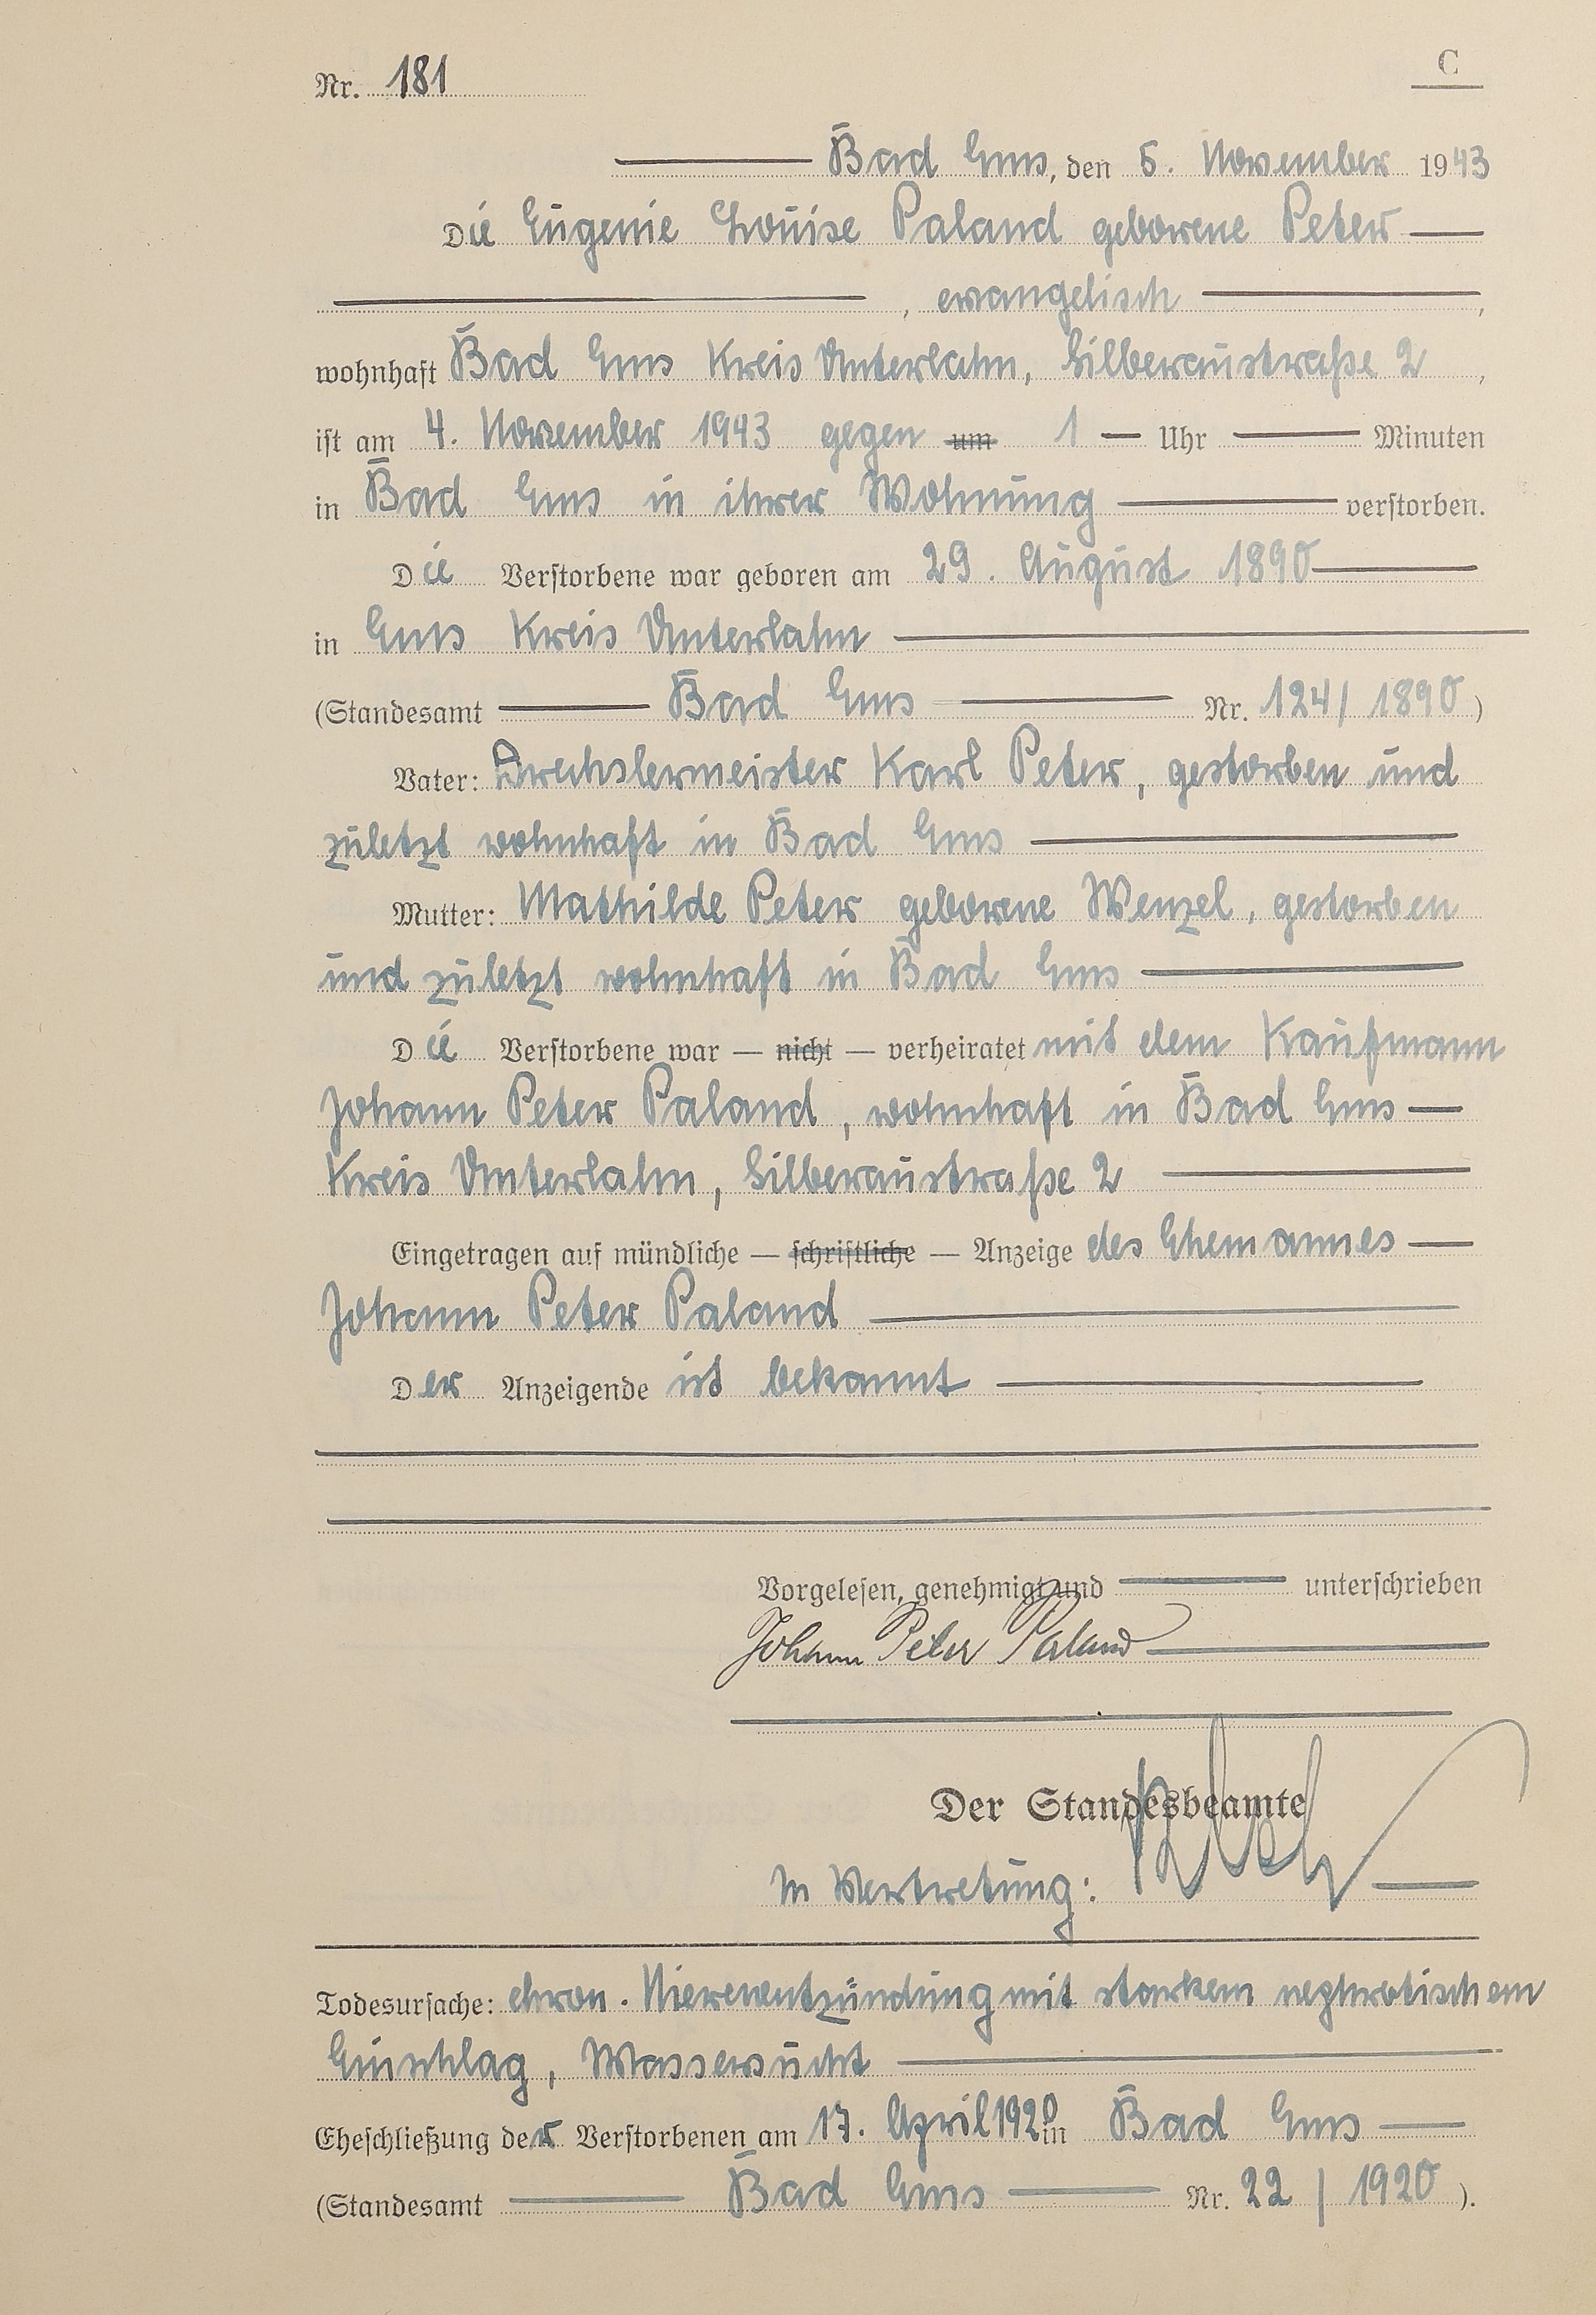 Nr. 181
C
Bad Ems, den 5. November 1943
Die Eugenie Louise Paland geborene Peter
, evangelisch ,
wohnhaft Bad Ems Kreis Unterlahn, Silberaustraße 2 ,
ist am 4. November 1943 gegen um 1 — Uhr Minuten
in Bad Ems in ihrer Wohnung verstorben.
Die Verstorbene war geboren am 29. August 1890
in Ems Kreis Unterlahn
(Standesamt Bad Ems Nr. 124/ 1890)
Vater: Drechslermeister Karl Peter, gestorben und
zuletzt wohnhaft in Bad Ems
Mutter: Mathilde Peter geborene Wenzel, gestorben
und zuletzt wohnhaft in Bad Ems
Die Verstorbene war — nicht — verheiratet mit dem Kaufmann
Johann Peter Paland, wohnhaft in Bad Ems —
Kreis Unterlahn, Silberaustraße 2
Eingetragen auf mündliche — schriftliche — Anzeige des Ehemannes —
Johann Peter Paland
Der Anzeigende ist bekannt
Vorgelesen, genehmigt und unterschrieben
Johann Peter Paland
Der Standesbeamte
In Vertretung:
Todesursache: chron. Nierenentzündung mit starkem nephrotischem
Einschlag, Wassersucht
Eheschließung der Verstorbenen am 17. April 1920 in Bad Ems —
(Standesamt Bad Ems Nr. 22 / 1920 ).